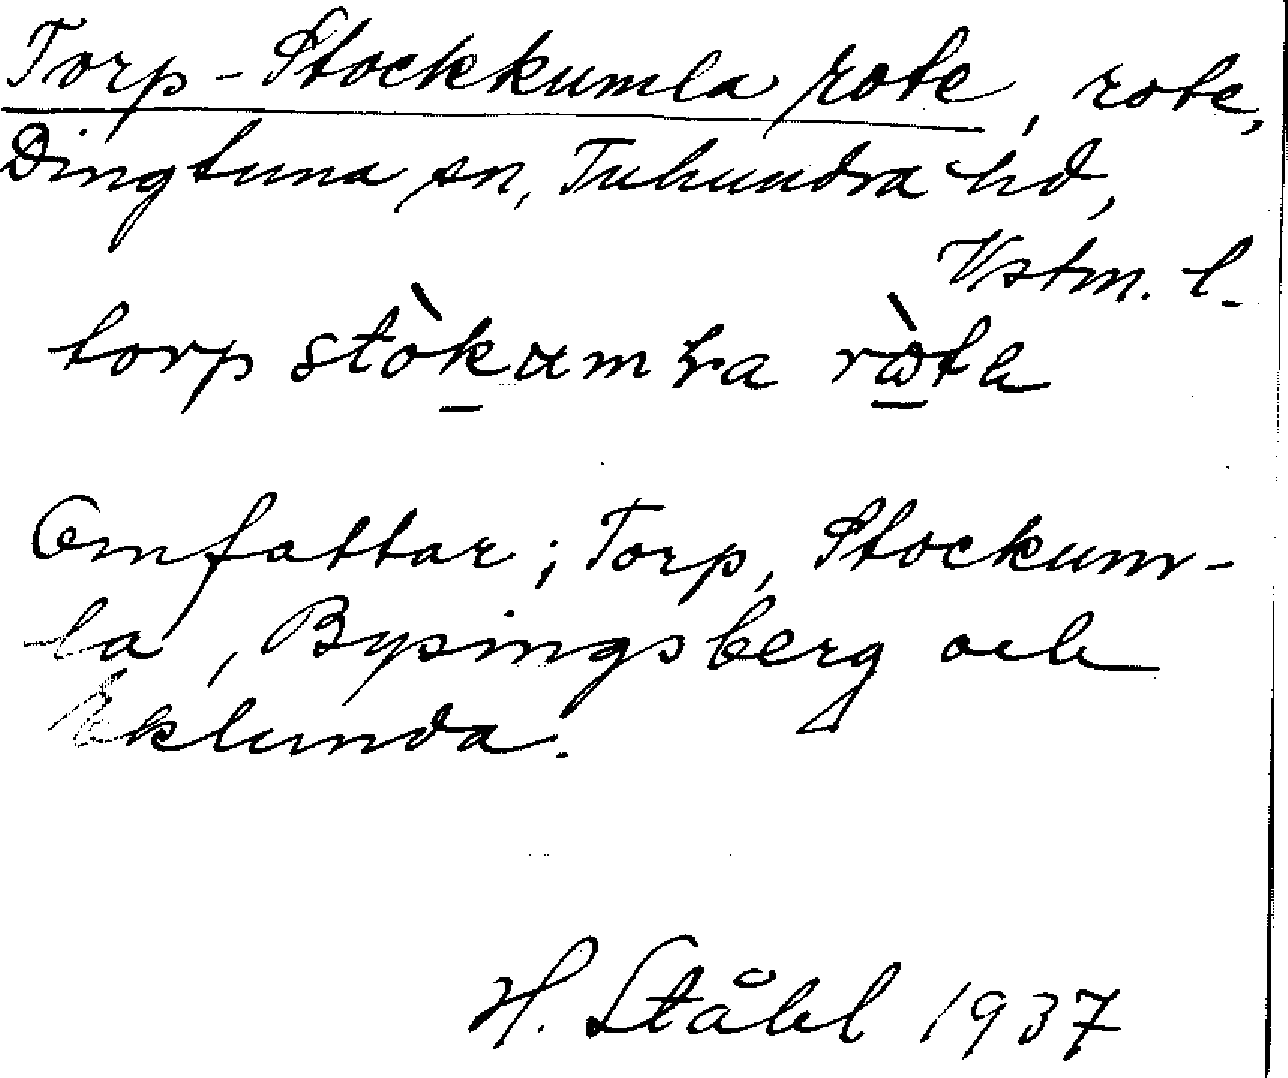 Torp-Stockkumla rote, rote,
Dingtuna sn, Tuhundra hd,
Vstm. l.
torp stòkumla ròta
Omfattar; Torp, Stockum-
la, Bysingsberg och
Eklunda.
H. Ståhl 1937